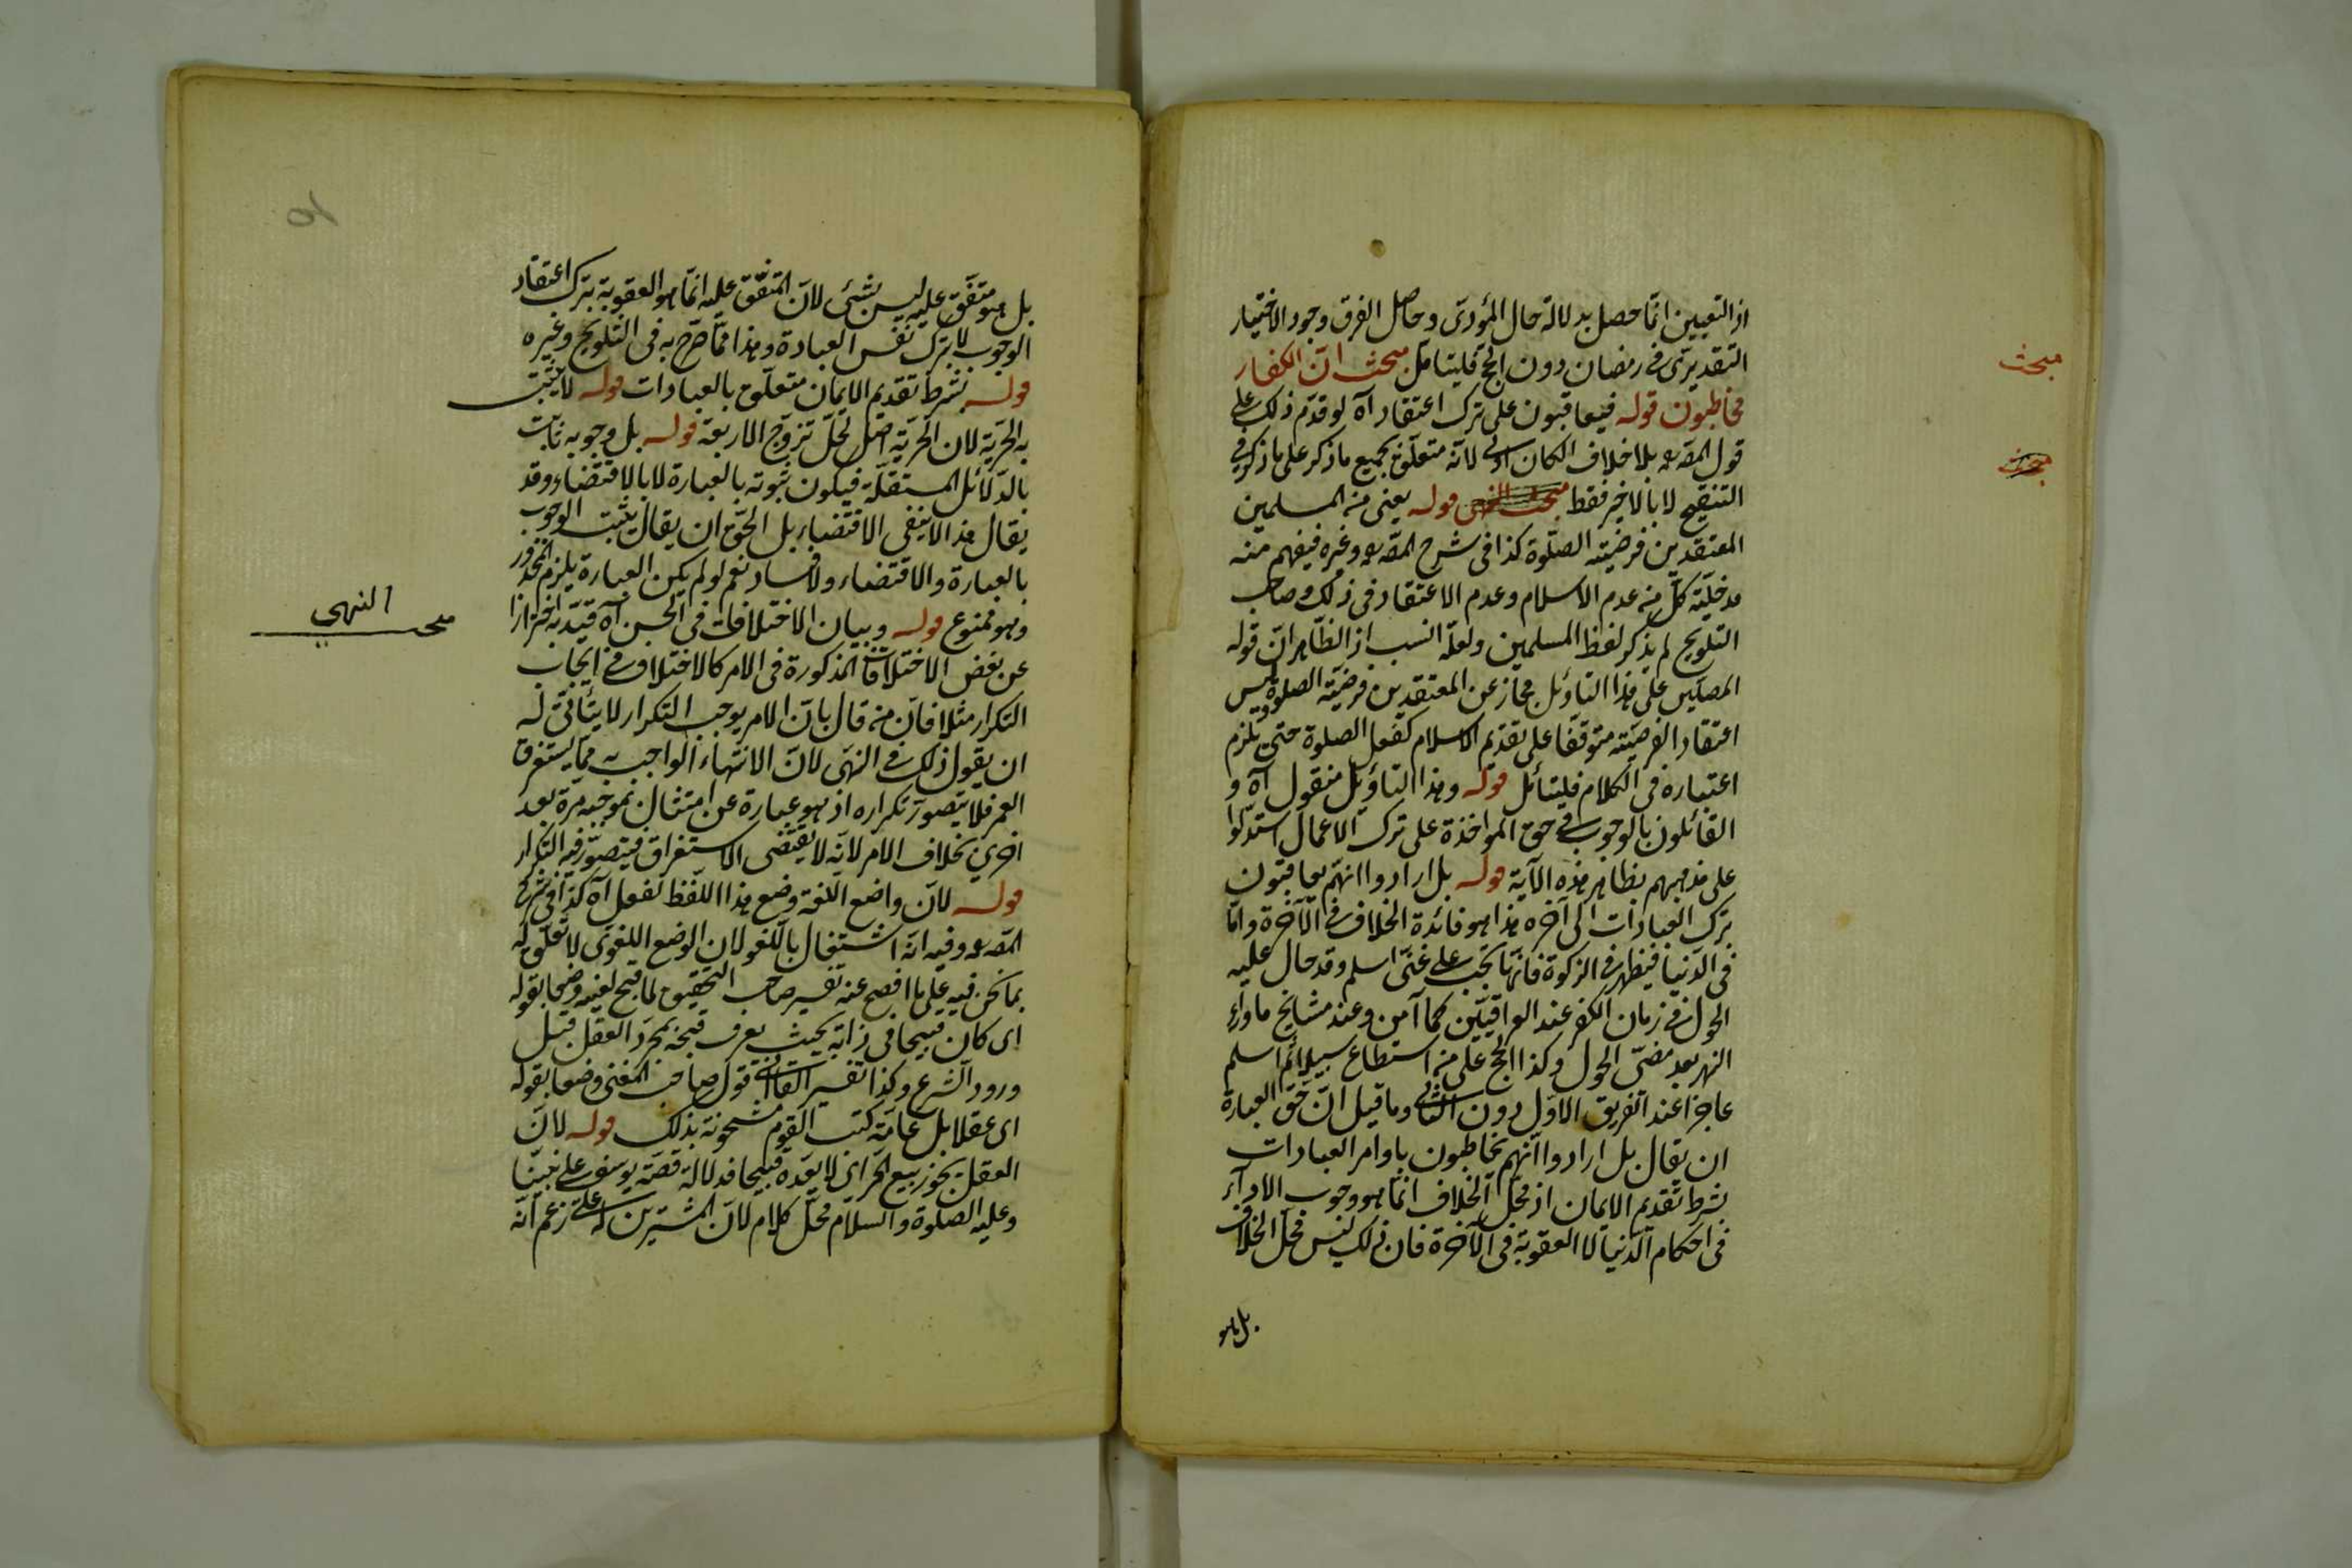 اذ التعيين انما حصل بدلالة حال المؤدى وحاصل الفرق وجود الاختيار
التقديرى فى رمضان دون الحج فليتأمل مبحث ان الكفار
مبحث
مخاطبون قوله فيعاقبون على ترك اعتقاد آه لو قدم ذلك على
قول المصـ بلا خلاف لكان اولى لانه متعلق بجميع ما ذكر على ما ذكر فى
مبحث
التنقيح لا بالاخير فقط مبحث النهى قوله يعنى من المسلمين
المعتقدين فرضيته الصلوة كذا فى شرح المصـ وغيره فيفهم منه
مدخلية كل من عدم الاسلام وعدم الاعتقاد فى ذلك وصاحب
التلويح لم يذكر لفظ المسلمين ولعله انسب اذ الظاهر ان قوله
المصلين على هذا التاويل مجاز عن المعتقدين فرضية الصلوة وليس
اعتقاد الفرضية متوقفا على تقديم الاسلام كفعل الصلوة حتى يلزم
اعتباره فى الكلام فليتأمل قوله وهذا التاويل منقول آه و
القائلون بالوجوب فى حق المواخذة على ترك الاعمال استدلوا
على مذهبهم بظاهر هذه الآية قوله بل ارادوا انهم يعاقبون
بترك العبادات الى آخره هذا هو فائدة الخلاف فى الآخرة واما
فى الدنيا فيظهر فى الزكوة فانها تجب على غنى اسلم وقد حال عليه
الحول فى زمان الكفر عند العراقيين كما آمن وعند مشايخ ماوراء
النهر بعد مضى الحول وكذا الحج على من استطاع سبيلا ثم اسلم
عاجزا عند الفريق الاول دون الثانى وما قيل ان حق العبارة
ان يقال بل ارادوا انهم مخاطبون باوامر العبادات
بشرط تقديم الايمان اذ محل الخلاف انما هو وجوب الاداء
فى احكام الدنيا لا العقوبة فى الآخرة فان ذلك ليس محل الخلاف
بل هو
بل هو متفق عليه ليس بشئ لان المتفق عليه انما هو العقوبة بترك اعتقاد
الوجوب لا بترك نفس العبادة وهذا مما صرح به فى التلويح وغيره
قوله بشرط تقديم الايمان متعلق بالعبادات قوله لا يثبت
به الحرية لان الحرية اصل لحل تزوج الاربعة قوله بل وجوبه ثابت
بالدلائل المستقلة فيكون ثبوته بالعبارة لا بالاقتضاء وقد
يقال هذا لا ينفى الاقتضاء بل الحق ان يقال يثبت الوجوب
بالعبارة والاقتضاء ولا فساد نعم لو لم يكن العبارة يلزم المحذور
وهو ممنوع قوله وبيان الاختلافات فى الحسن آه قيد به احترازا
مبحث النهى
عن بعض الاختلافات المذكورة فى الامر كالاختلاف فى ايجاب
التكرار مثلا فان من قال بان الامر يوجب التكرار لا يتأتى له
ان يقول ذلك فى النهى لان الانتهاء الواجب به مما يستغرق
العمر فلا يتصور تكراره اذ هو عبارة عن امتثال بموجبه مرة بعد
اخرى بخلاف الامر لانه لا يقتضى الاستغراق فيتصور فيه التكرار
قوله لان واضع اللغة وضع هذا اللفظ لفعل آه كذا فى شرح
المصـ وفيه انه اشتغال باللغو لان الوضع اللغوى لا تعلق له
بما نحن فيه على ما افصح عنه تفسير صاحب التحقيق لما قبح لعينه وضعا بقوله
اى كان قبيحا فى ذاته بحيث يعرف قبحه بمجرد العقل قبل
ورود الشرع وكذا تفسير القاآنى قول صاحب المغنى وضعا بقوله
اى عقلا بل عامة كتب القوم مشحونة بذلك قوله لان
العقل يجوز بيع الحر اى لا يعده قبيحا فدلالة قصة يوسف على نبينا
وعليه الصلوة والسلام محل كلام لان المشترين له على زعم انه